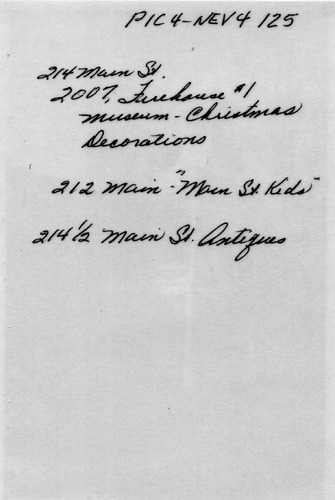 PIC4-NEV4 125
214 Main St.
2007, Firehouse #1
Museum - Christmas
Decorations
212 Main - "Main St. Kids"
214 1/2 Main St. Antiques